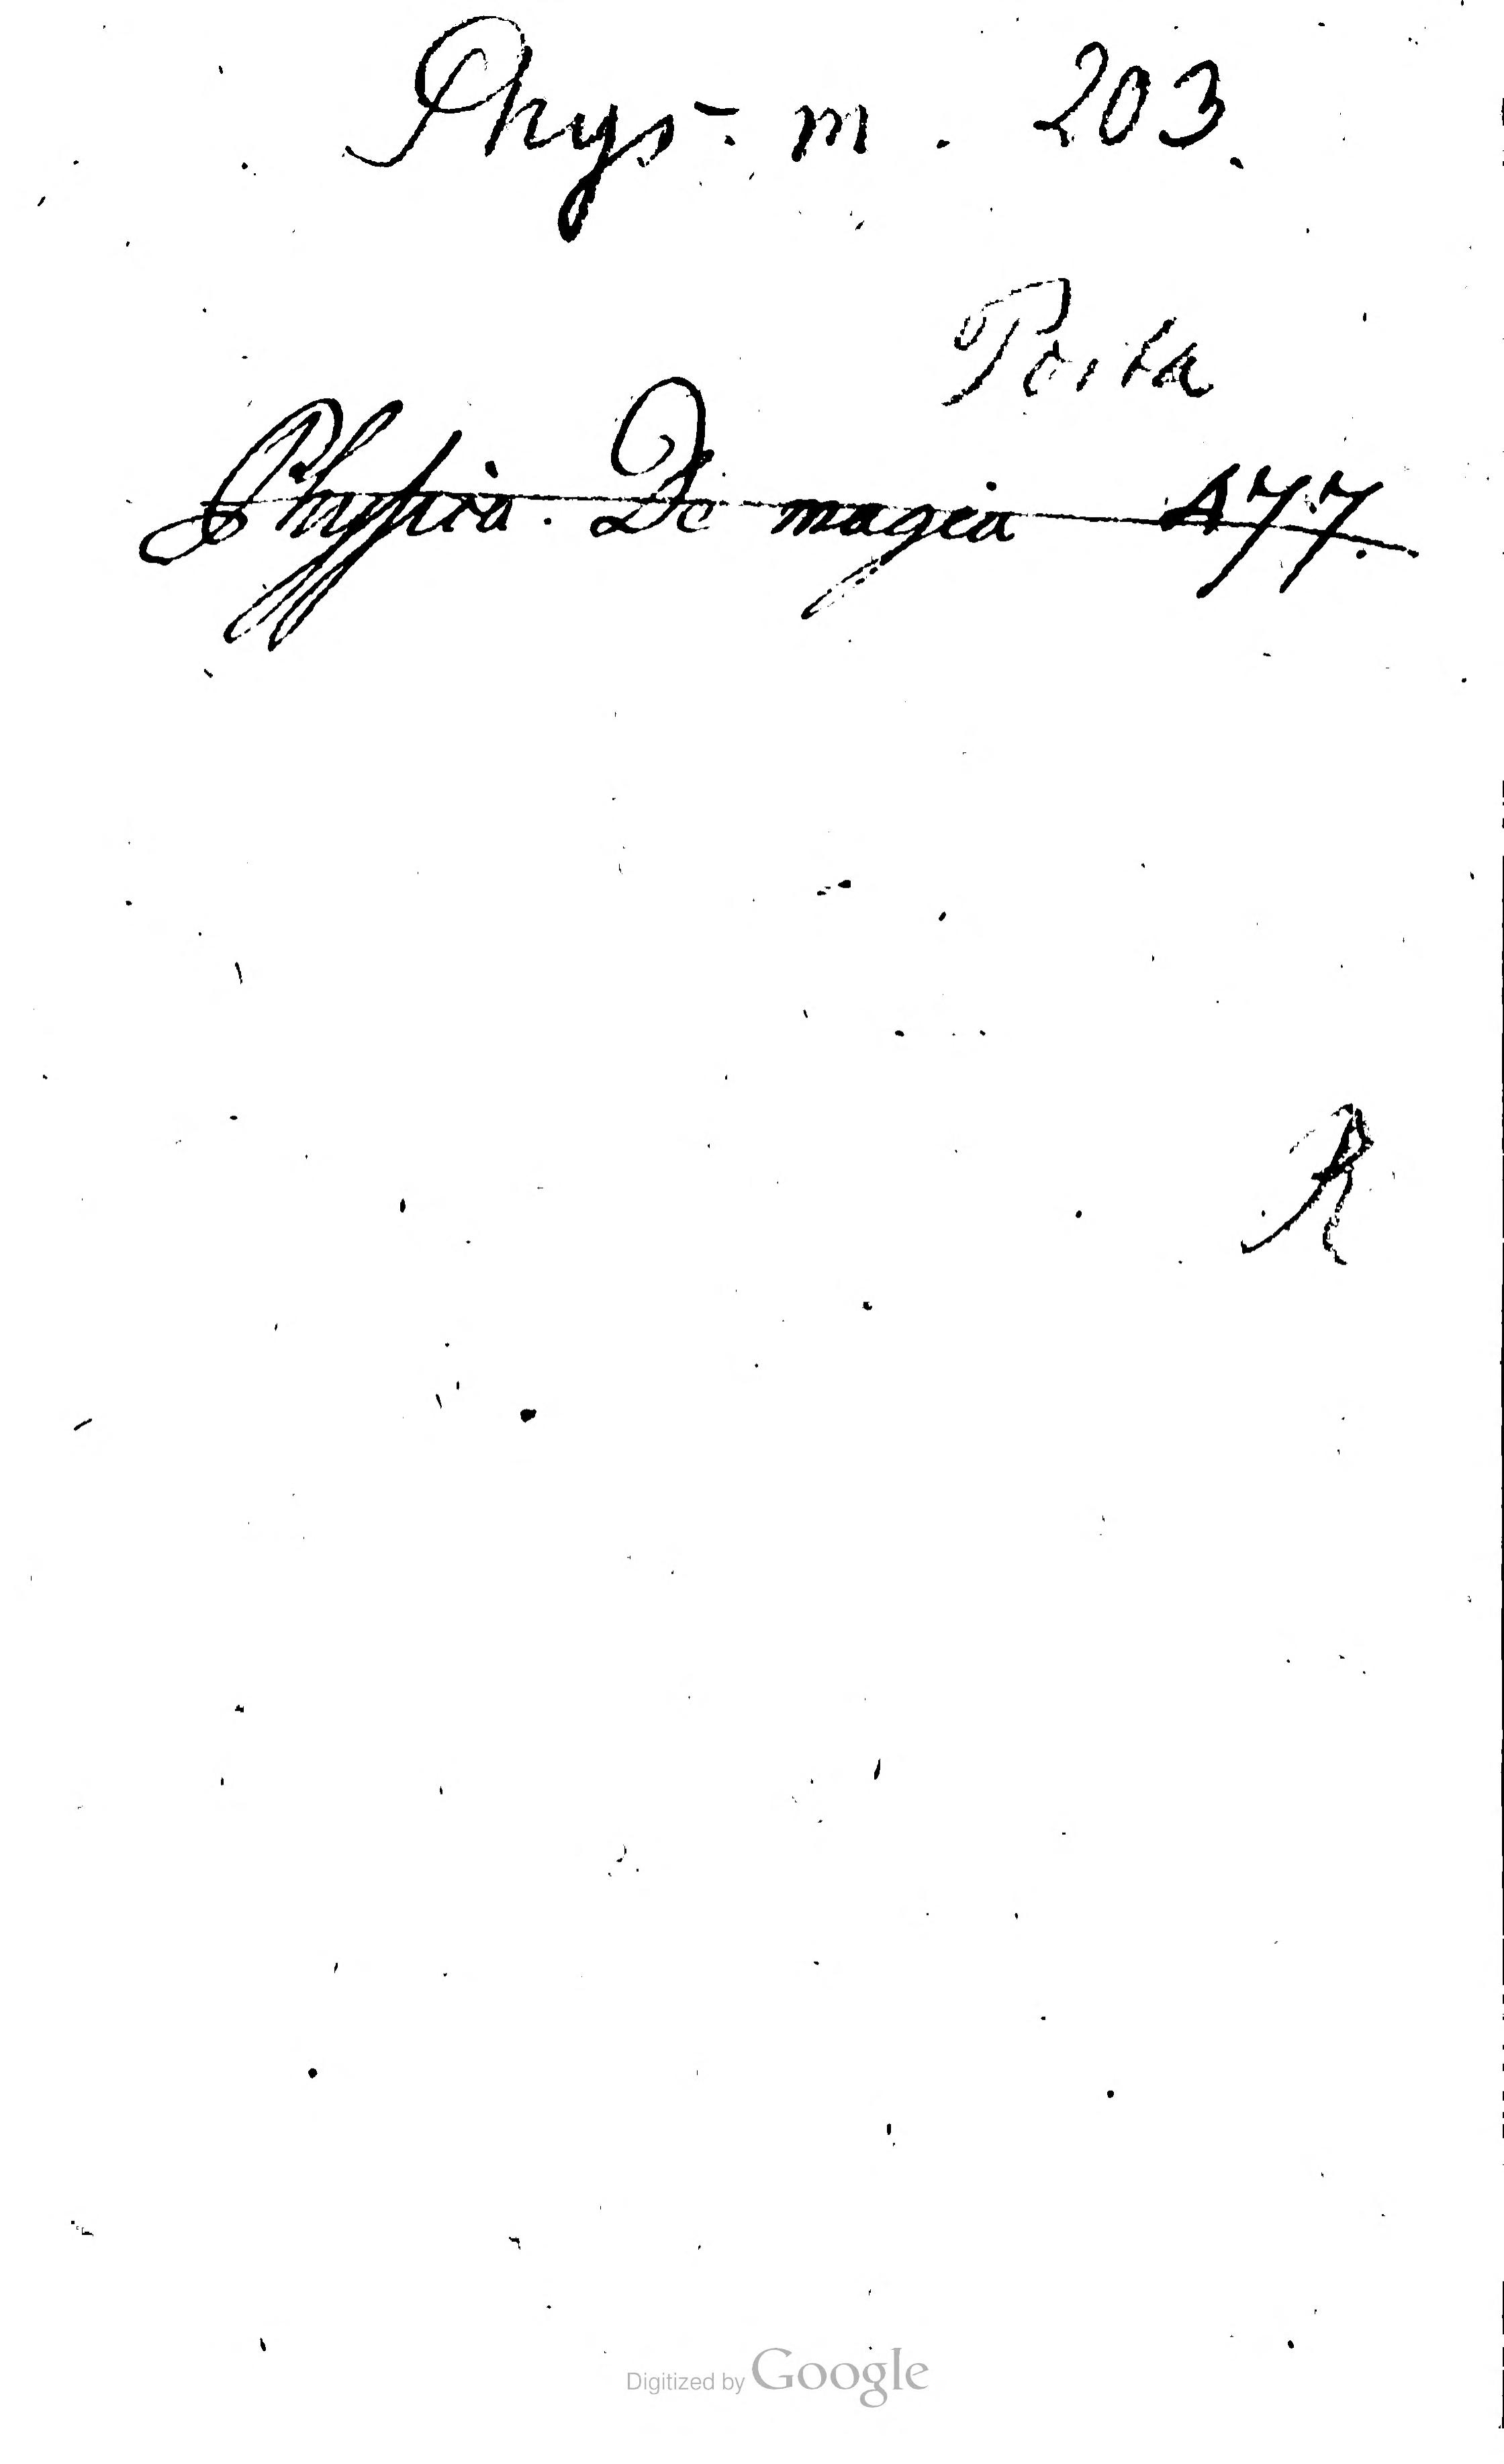 Phys. m. 203.
Porta
Physica. De magia 477.
R
Digitized by Google